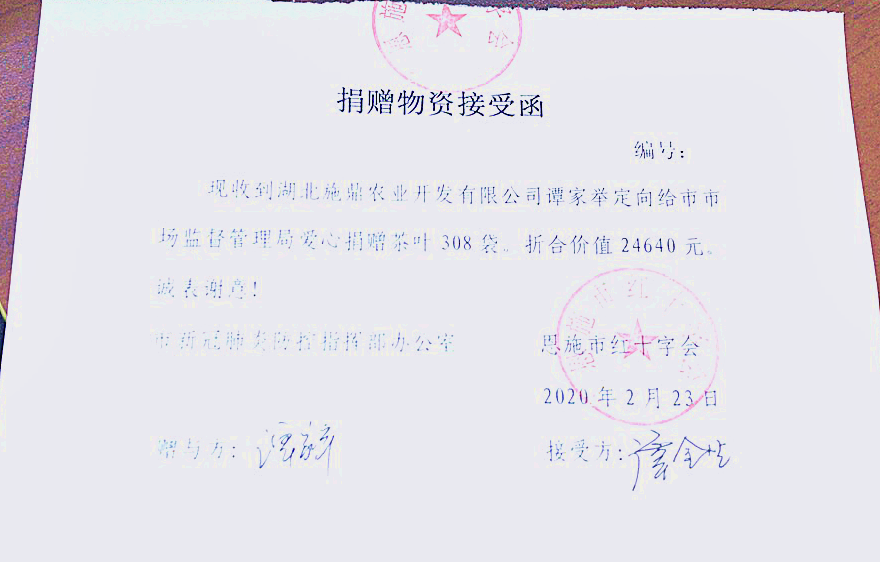 捐赠物资接受函
编号：
现收到湖北施鼎农业开发有限公司谭家举定向给市市
场监督管理局爱心捐赠茶叶 308 袋。折合价值 24640 元。
诚表谢意！
市新冠肺炎防控指挥部办公室
恩施市红十字会
2020 年 2 月 23 日
赠与方：
接受方：